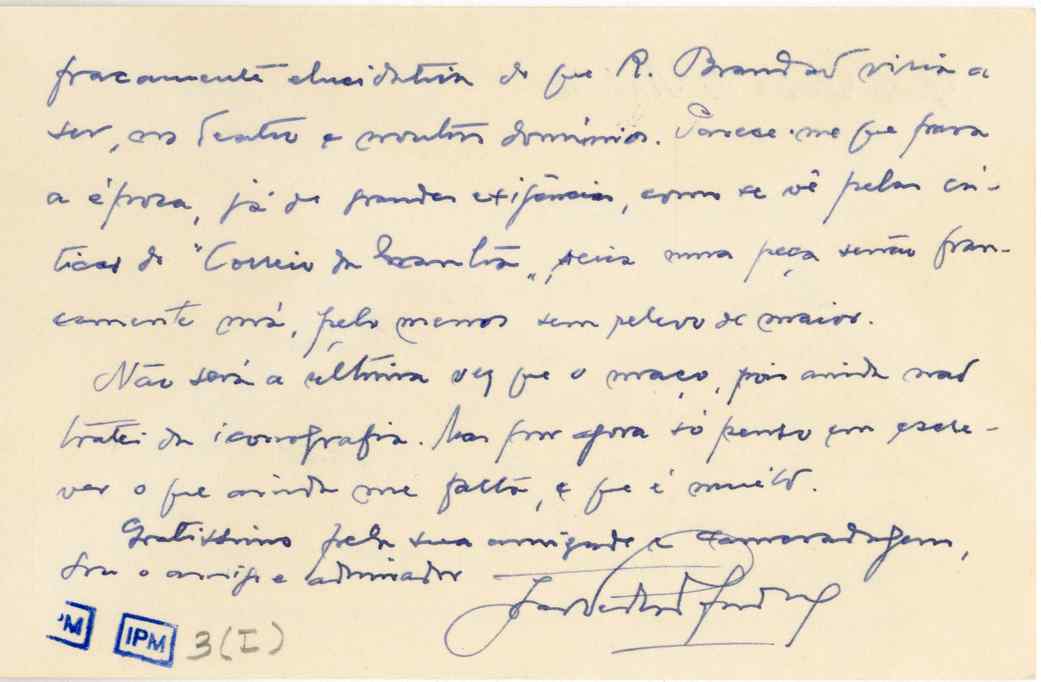 fracamente elucidativa do que R. Brandão viria a
ser, no Teatro e noutros domínios. Parece-me que para
a época, já de grandes exigências, como se vê pelas crí-
ticas do "Correio da Manhã", seria uma peça senão fran-
camente má, pelo menos sem relevo de maior.
Não será a última vez que o maço, pois ainda não
tratei da iconografia. Mas por agora só penso em escre-
ver o que ainda me falta, e que é muito.
Gratíssimo pela sua amizade e camaradagem,
Seu o amigo e admirador
IPM IPM 3(I)